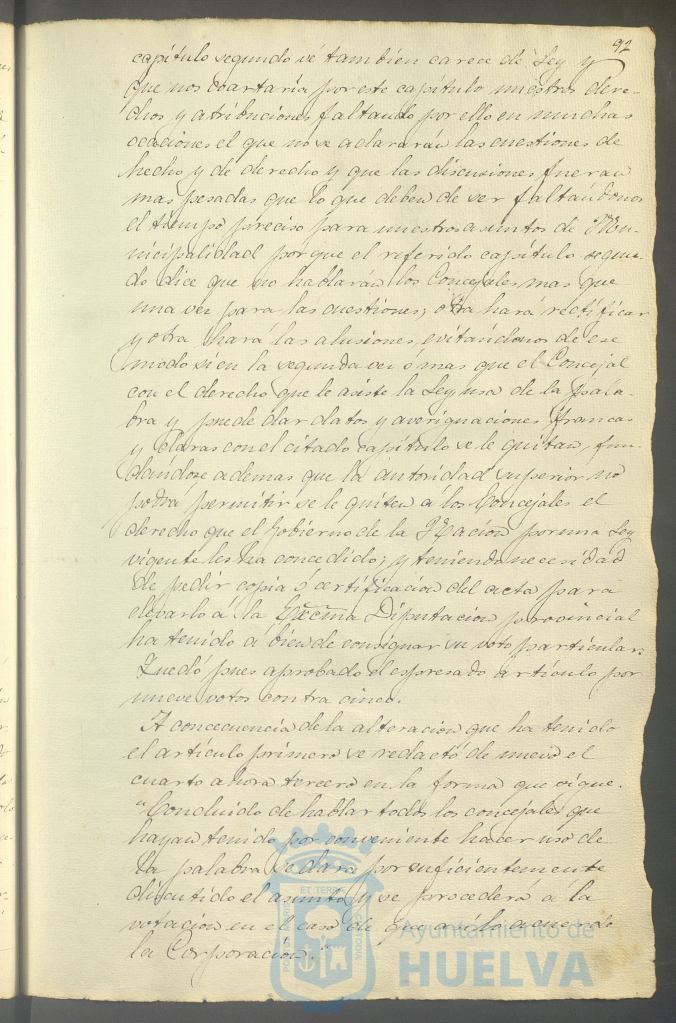 92
capítulo segundo se tambien carece de Ley y
que nos coartaria por este capítulo nuestros dere-
chos y atribuciones faltando por ello en muchas
ocaciones el que no se aclararán las cuestiones de
hecho y de derecho y que las discusiones fueran
mas pesadas que lo que deben de ser faltandonos
el tiempo preciso para nuestros asuntos de Mu-
nicipalidad porque el referido capítulo segun-
do dice que no hablarán los Concejales mas que
una vez para las cuestiones; otra hará rectificar
y otra hará las alusiones, evitandonos de ese
modo si en la segunda vez ó mas que el Concejal
con el derecho que le asiste la Ley usa de la pala-
bra y puede dar datos y averiguaciones francas
y claras con el citado capítulo se le quitan, fun-
dandose ademas que la autoridad superior no
podrá permitir se le quiten á los Concejales el
derecho que el Gobierno de la Nacion por una Ley
vigente les ha concedido; y teniendo necesidad
de pedir copia ó certificacion del acta para
elevarlo á la Excma Diputacion provincial
ha tenido á bien de consignar su voto particular.
Quedó pues aprobado el espresado artículo por
nueve votos contra cinco.
A concecuencia de la alteracion que ha tenido
el artículo primero se redactó de nuevo el
cuarto ahora tercero en la forma que sigue.
"Concluido de hablar todos los concejales que
hayan tenido por conveniente hacer uso de
la palabra se dara por suficientemente
discutido el asunto y se procederá á la
votacion en el caso de que asi lo acuerde
la Corporacion."
Ayuntamiento de
HUELVA